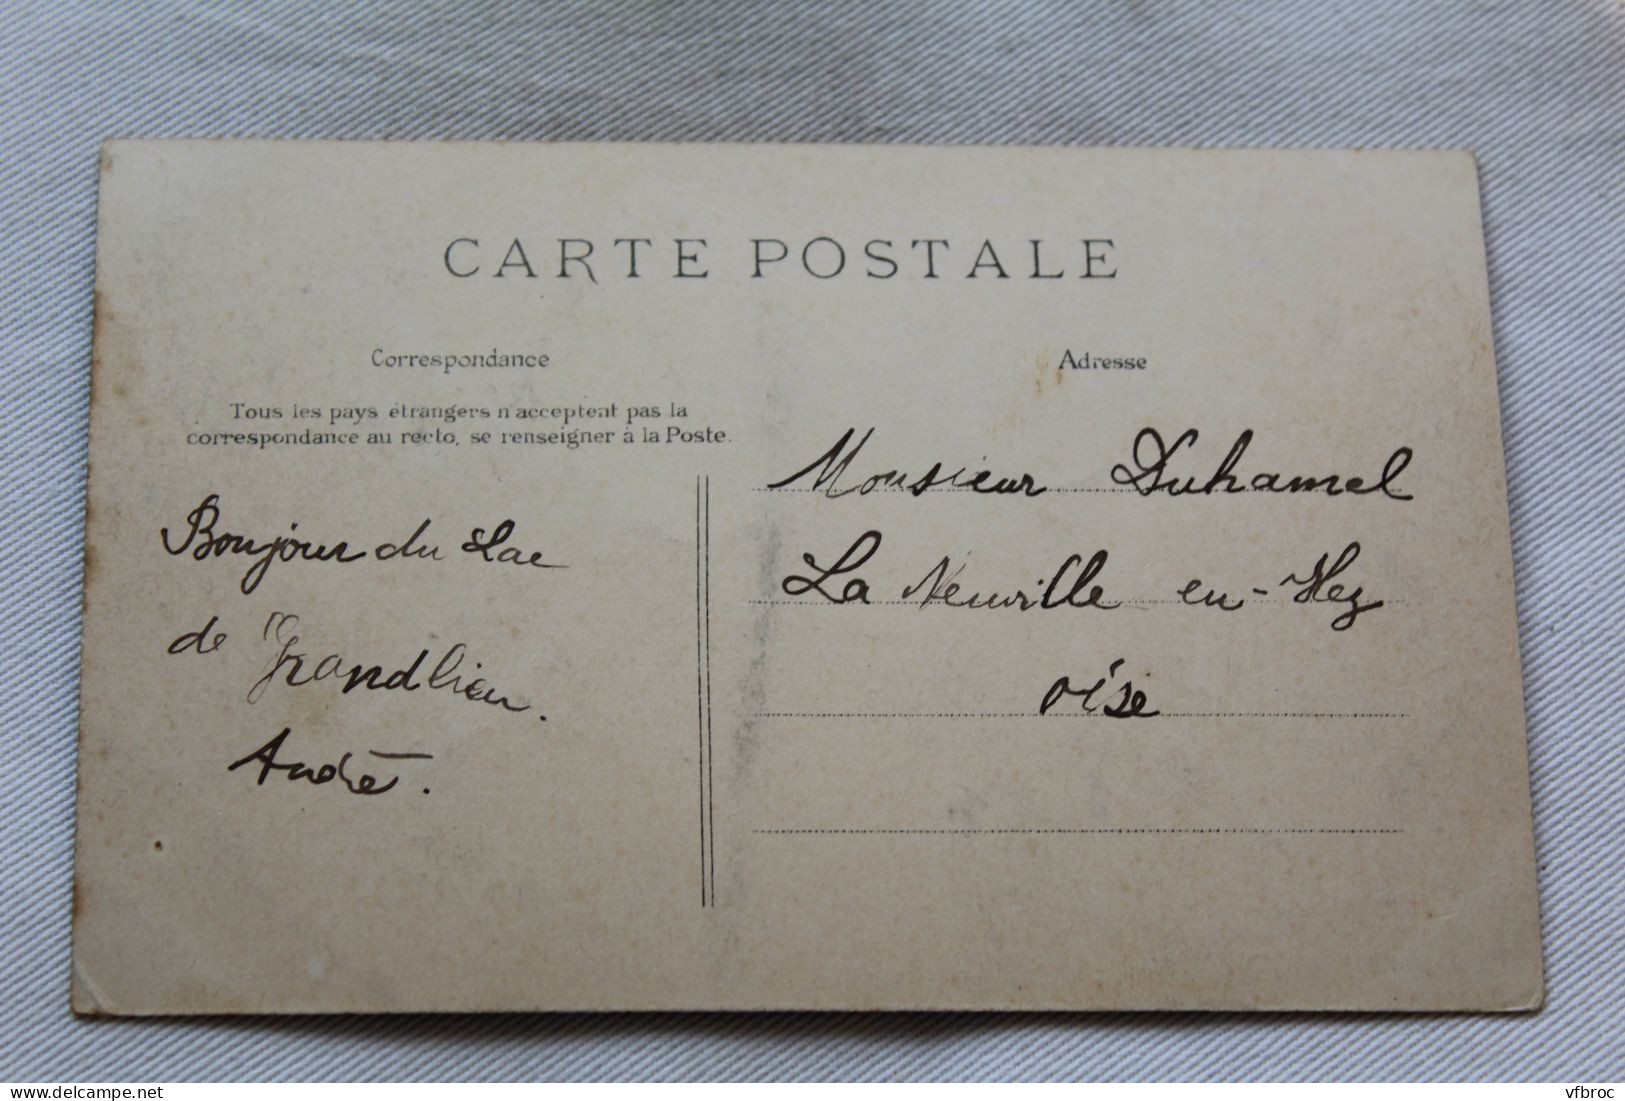 CARTE POSTALE
Correspondance
Tous les pays étrangers n'acceptent pas la
correspondance au recto, se renseigner à la Poste.
Bonjour du Lac
de Grandlieu.
André.
Adresse
Monsieur Duhamel
La Neuville en-Hez
Oise
delcampe.net
vfbroc